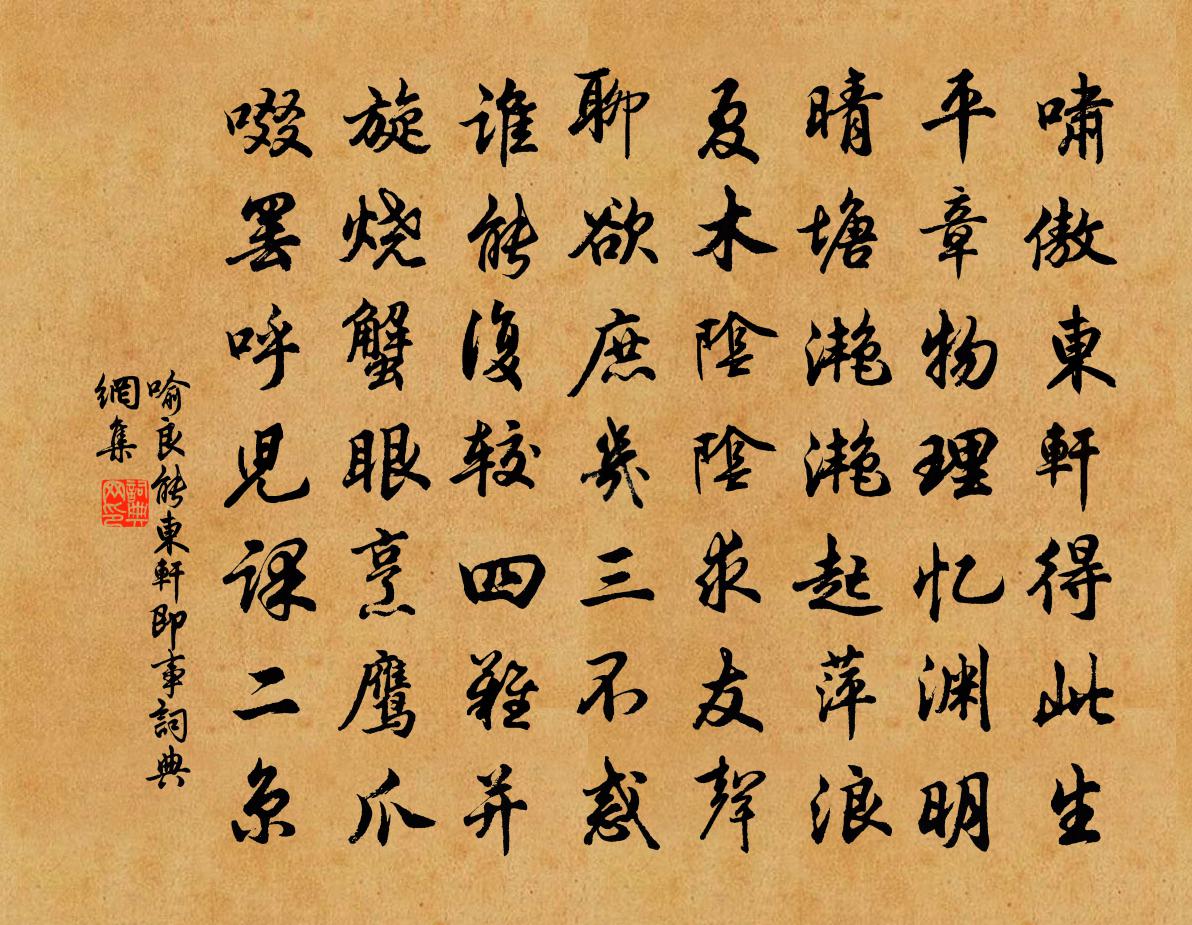 嘯傲東軒得此生
平章物理忆渊明
晴塘滟滟起萍浪
夏木陰陰求友聲
聊欲庶幾三不惑
谁能復较四難并
旋烧蟹眼烹鹰爪
啜罢呼児课二京
喻良能東軒即事詞典
網集
詞典
网印